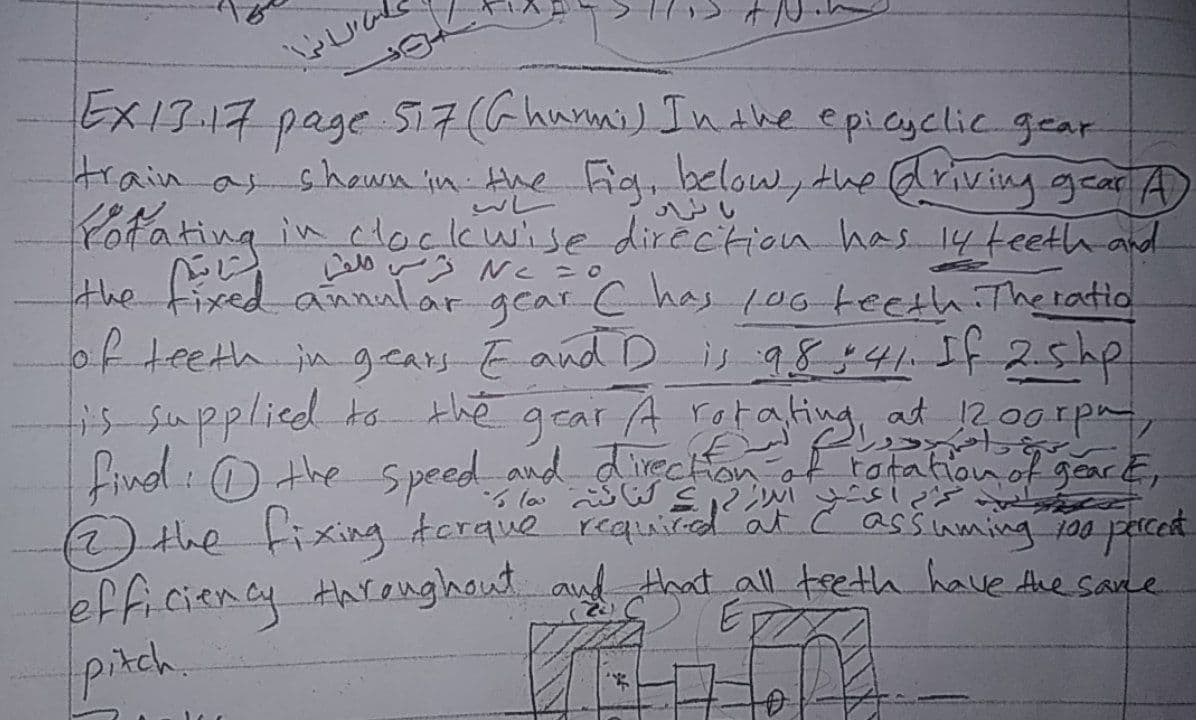 Ex 13.17 page 517 (Ghurmi) In the epicyclic gear
train as shown in the Fig. below, the driving gear A
rotating in clockwise direction has 14 teeth and
Nc = 0
the fixed annular gear C has 100 teeth. The ratio
of teeth in gears E and D is 98:41. If 2.5 hp
is supplied to the gear A rotating at 1200 rpm,
find: ① the speed and direction of rotation of gear E,
② the fixing torque required at C assuming 100 percent
efficiency throughout and that all teeth have the same
C E
pitch.